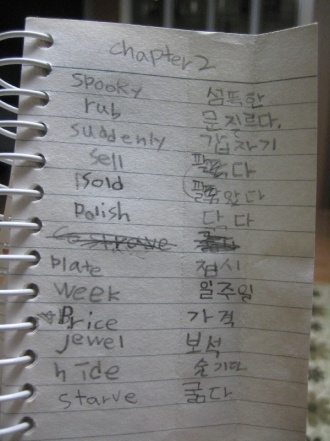 chapter 2
spooky 섬뜩한
rub 문지르다.
suddenly 갑자기
sell 팔다
sold 팔았다
polish 닦다
plate 접시
week 일주일
Price 가격
jewel 보석
hide 숨기다
starve 굶다